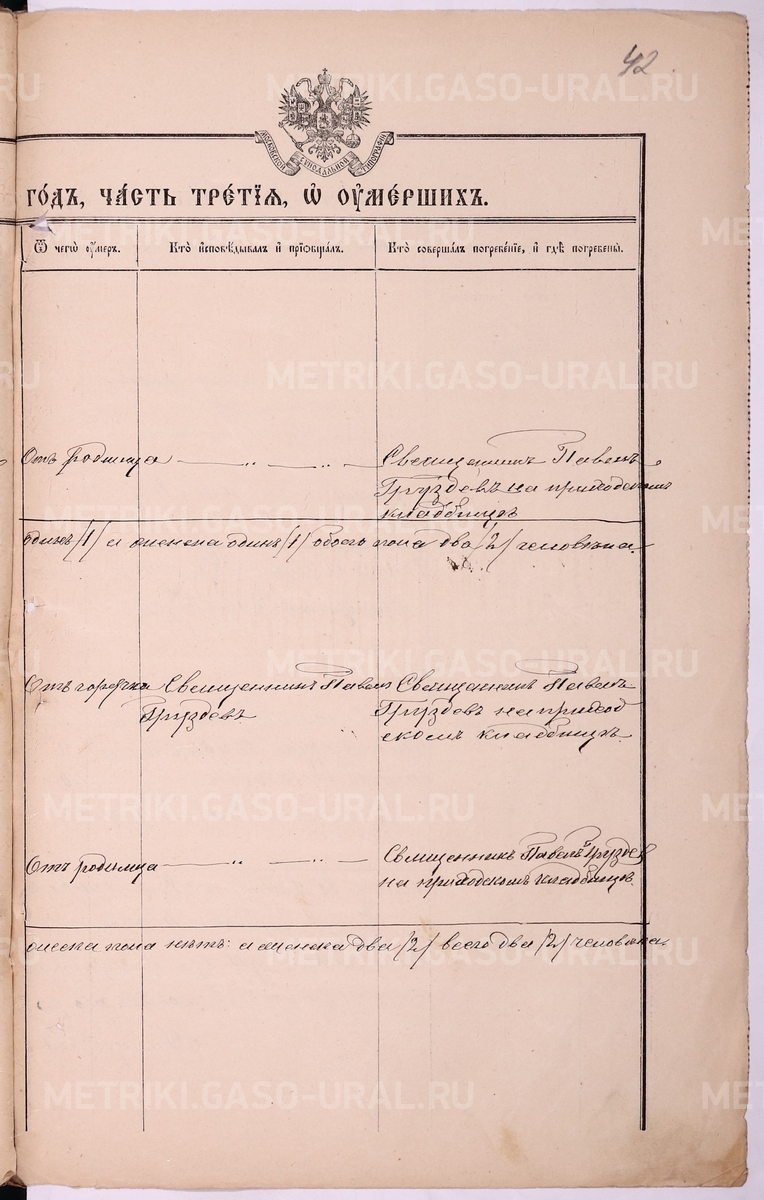 42
МОСКОВСКОЙ СѴНОДАЛЬНОЙ ТИПОГРАФІИ
го́дъ, ча́сть тре́тїѧ, ѡ҆ ᲂу҆ме́ршихъ.
Ѿ чегѡ̀ ᲂу҆́меръ.
Кто̀ и҆сповѣ́дывалъ и҆ прїѡбща́лъ.
Кто̀ соверша́лъ погребе́нїе, и҆ гдѣ̀ погребены̀.
Отъ родимца
Священникъ Павелъ
Груздевъ на приходскомъ
кладбищѣ
одинъ /1/ а женска одинъ /1/ обоего пола два /2/ человѣка.
Отъ горячки
Священникъ Павелъ
Груздевъ
Священникъ Павелъ
Груздевъ на приход
скомъ кладбищѣ.
Отъ родимца
Священникъ Павелъ Груздев
на приходскомъ кладбищѣ.
мужеска пола нѣтъ: а женска два /2/ всего два /2/ человѣка.
METRIKI.GASO-URAL.RU